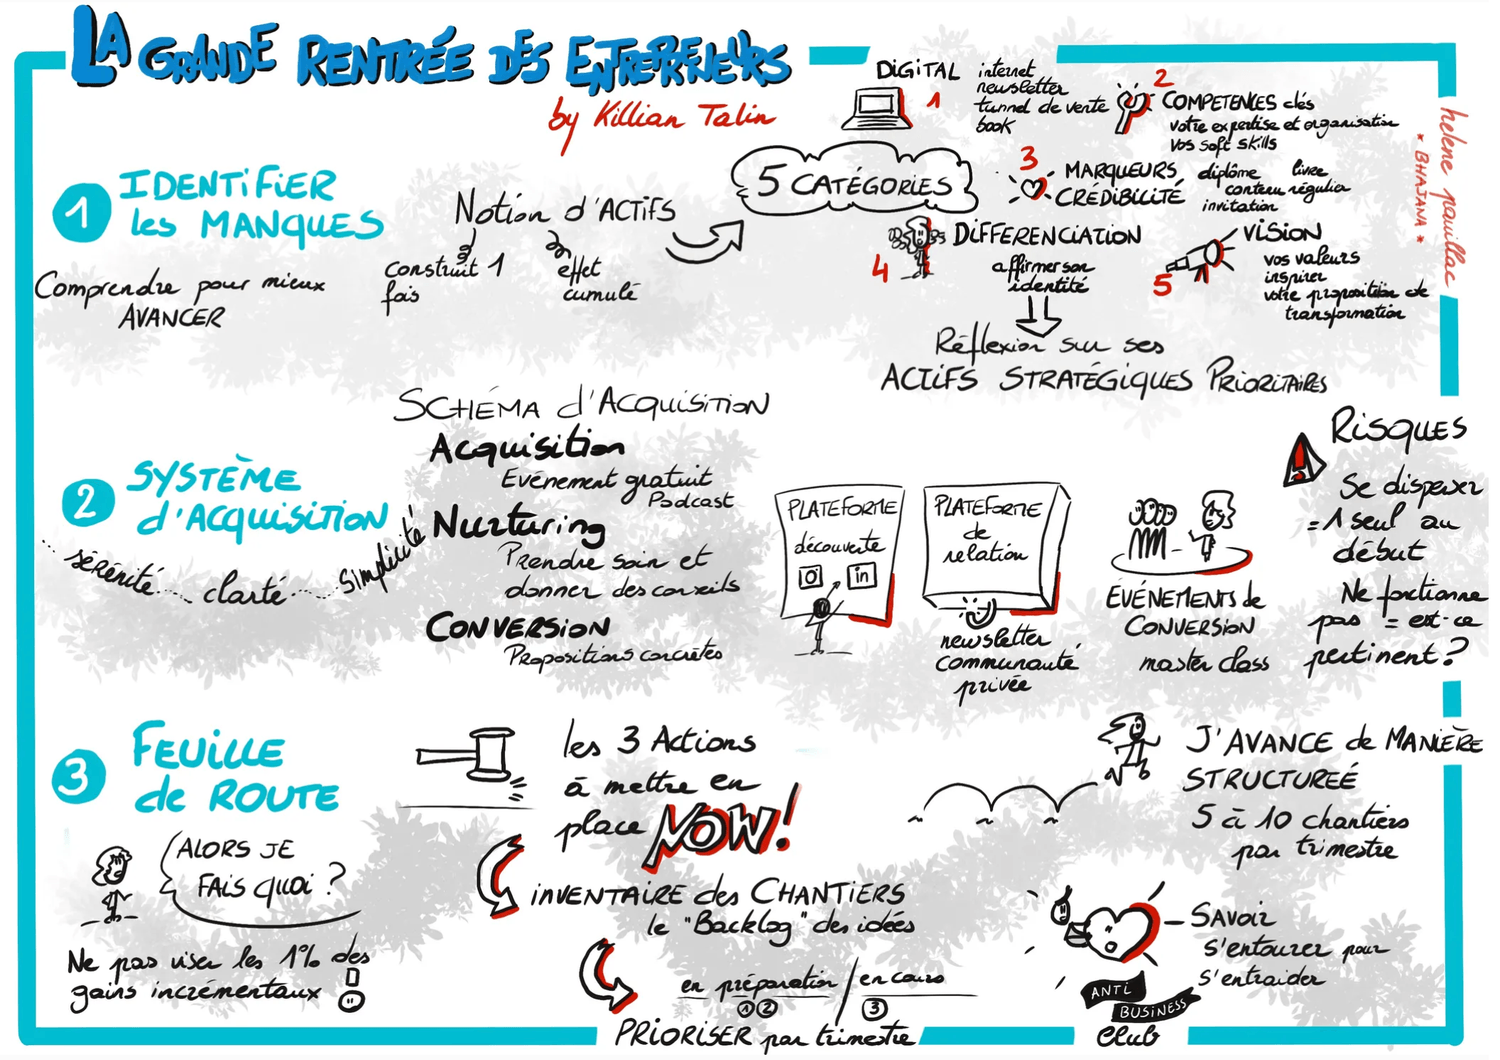 LA GRANDE RENTRÉE DES ENTREPRENEURS
by Killian Talin
helene pouillac
* BHAJANA *
1
IDENTIFIER
les MANQUES
Comprendre pour mieux
AVANCER
Notion d'ACTIFS
construit 1
fois
effet
cumulé
5 CATÉGORIES
DIGITAL
internet
newsletter
tunnel de vente
book
1
2
COMPETENCES clés
votre expertise et organisation
vos soft skills
3
MARQUEURS
CRÉDIBILITÉ
diplôme livre
contenu régulier
invitation
4
DIFFERENCIATION
affirmer son
identité
5
VISION
vos valeurs
inspirer
votre proposition de
transformation
Réflexion sur ses
ACTIFS STRATÉGIQUES PRIORITAIRES
2
SYSTÈME
d'ACQUISITION
sérénité clarté simplicité
SCHÉMA d'ACQUISITION
Acquisition
Evénement gratuit
Podcast
Nurturing
Prendre soin et
donner des conseils
CONVERSION
Propositions concrètes
PLATEFORME
découverte
in
PLATEFORME
de
relation
newsletter
communauté
privée
EVÉNEMENTS de
CONVERSION
master class
RISQUES
Se disperser
= 1 seul au
début
Ne fonctionne
pas = est-ce
pertinent ?
3
FEUILLE
de ROUTE
ALORS JE
FAIS QUOI ?
Ne pas viser les 1% des
gains incrémentaux !
les 3 Actions
à mettre en
place NOW!
INVENTAIRE des CHANTIERS
le "Backlog" des idées
en préparation / en cours
1 2 3
PRIORISER par trimestre
J'AVANCE de MANIÈRE
STRUCTUREÉ
5 à 10 chantiers
par trimestre
SAVOIR
s'entourer pour
s'entraider
ANTI
BUSINESS
Club